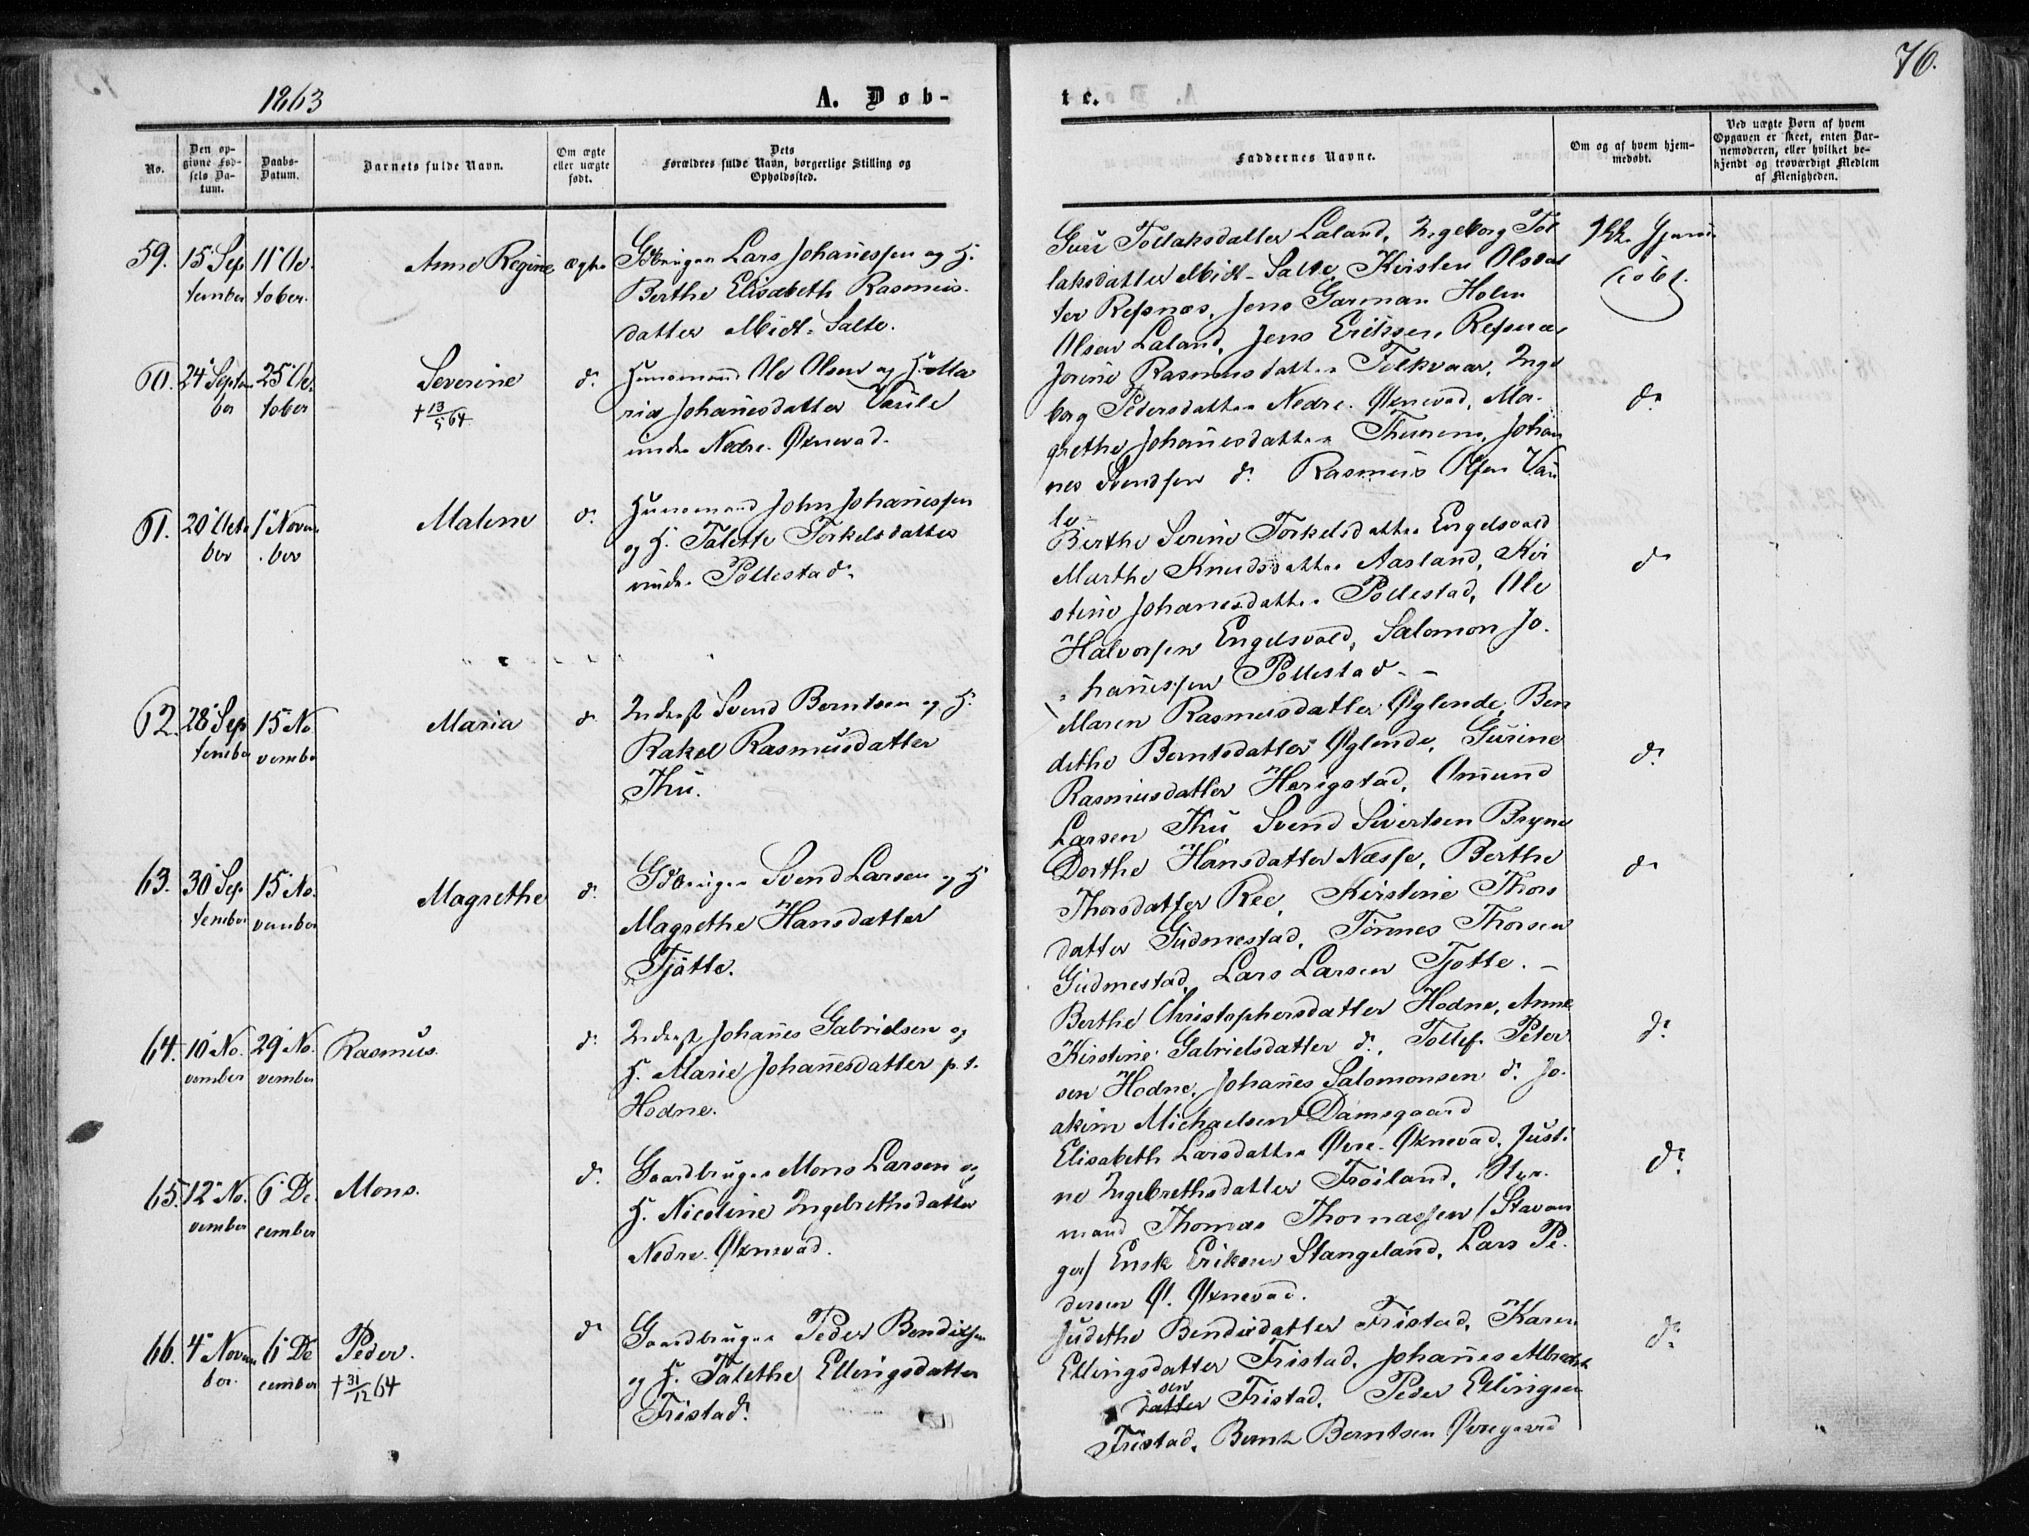 1863
A. Døb-
te.
76.
No.
Den op-
givne Fød-
sels Da-
tum.
Daabs-
Datum.
Barnets fulde Navn.
Om ægte
eller uægte
født.
Dets
Forældres fulde Navn, borgerlige Stilling og
Opholdssted.
Faddernes Navne.
Om og af hvem hjem-
medøbt.
Ved uægte Børn af hvem
Opgaven er skeet, enten Bar-
nemoderen, eller hvilket be-
kjendt og troværdigt Medlem
af Menigheden.
59. 15 Sep
tember
11 Oc.
tober.
Anne Regine
ægte
Gdbruger Lars Johanessen og H.
Berthe Elisabeth Rasmus-
datter Midt-Salte.
Guri Tollaksdatter Laland, Ingeborg Tol
laksdatter Midt-Salte, Kirsten Olsdat
ter Refsnæs, Jens Garman Holm
Olsen Laland, Jens Eriksen Refsnæs
Ikke hjem
døbt.
60. 24 Septem
ber
25 Oc.
tober
Severine
† 13/5 64
d.
Huusmand Ole Olsen og H. Ma
ria Johanesdatter
under Nedre Øxnevad.
Jorine Rasmusdatter Folkvaar, Inge
borg Pedersdatter Nedre Øxnevad, Ma-
grethe Johanesdatter Johan
nes Svendsen d. Rasmus Olsen
d.
61. 20 Octo
ber
1 Novem
ber
Malene
d.
Huusmand John Johanessen
og H. Talette Torkelsdatter
under Pollestad.
Berthe Serine Torkelsdatter Engelsvold
Marthe Knudsdatter Aasland, Kir
stine Johanesdatter Pollestad, Ole
Halvorsen Engelsvold, Salomon Jo-
hanessen Pollestad.
d.
62. 28 Sep
tember
15 No
vember
Maria
d.
Inderst Svend Berntsen og H.
Rakel Rasmusdatter
Thu.
Maren Rasmusdatter Øglende, Ben
dethe Berntsdatter Øglende, Gurine
Rasmusdatter Herigstad, Omund
Larsen Thu, Svend Sivertsen Bryne
d.
63. 30 Sep
tember
15 No.
vember
Magrethe
d.
Gdbruger Svend Larsen og H
Magrethe Hansdatter
Tjøtte.
Dorthe Hansdatter Næsse, Berthe
Thorsdatter Ree, Kirstine Thors
datter Gudmestad, Tønnes Thorsen
Gudmestad, Lars Larsen Tjøtte.
d.
64. 10 No.
vember
29 No.
vember
Rasmus.
d.
Inderst Johanes Gabrielsen og
H. Marie Johanesdatter p.t.
Hodne.
Berthe Christophersdatter Hodne, Anne
Kirstine Gabrielsdatter d., Tollef Peter
sen Hodne, Johanes Salomonsen d. Jo-
akim Michaelsen Damsgaard
d.
65. 12 No.
vember
6 De
cember
Mons.
d.
Gaardbruger Mons Larsen og
H. Nicoline Ingebrethsdatter
Nedre Øxnevad.
Elisabeth Larsdatter Øvre Øxnevad, Justi
ne Ingebrethsdatter Frøiland, Styr-
mand Thomas Thomassen / Stavan
ger / Enok Eriksen Stangeland, Lars Pe-
dersen Ø. Øxnevad.
d.
66. 4 Novem
ber.
6 De
cember
Peder.
† 31/12 64
d.
Gaardbruger Peder Bendixsen
og H. Talethe Ellingsdatter
Fristad.
Judethe Bendixdatter Fristad, Karen
Ellingsdatter Fristad, Johanes Albrecht
sen
datter Fristad, Peder Ellingsen
Fristad, Bernt Berntsen Øvregaard
d.